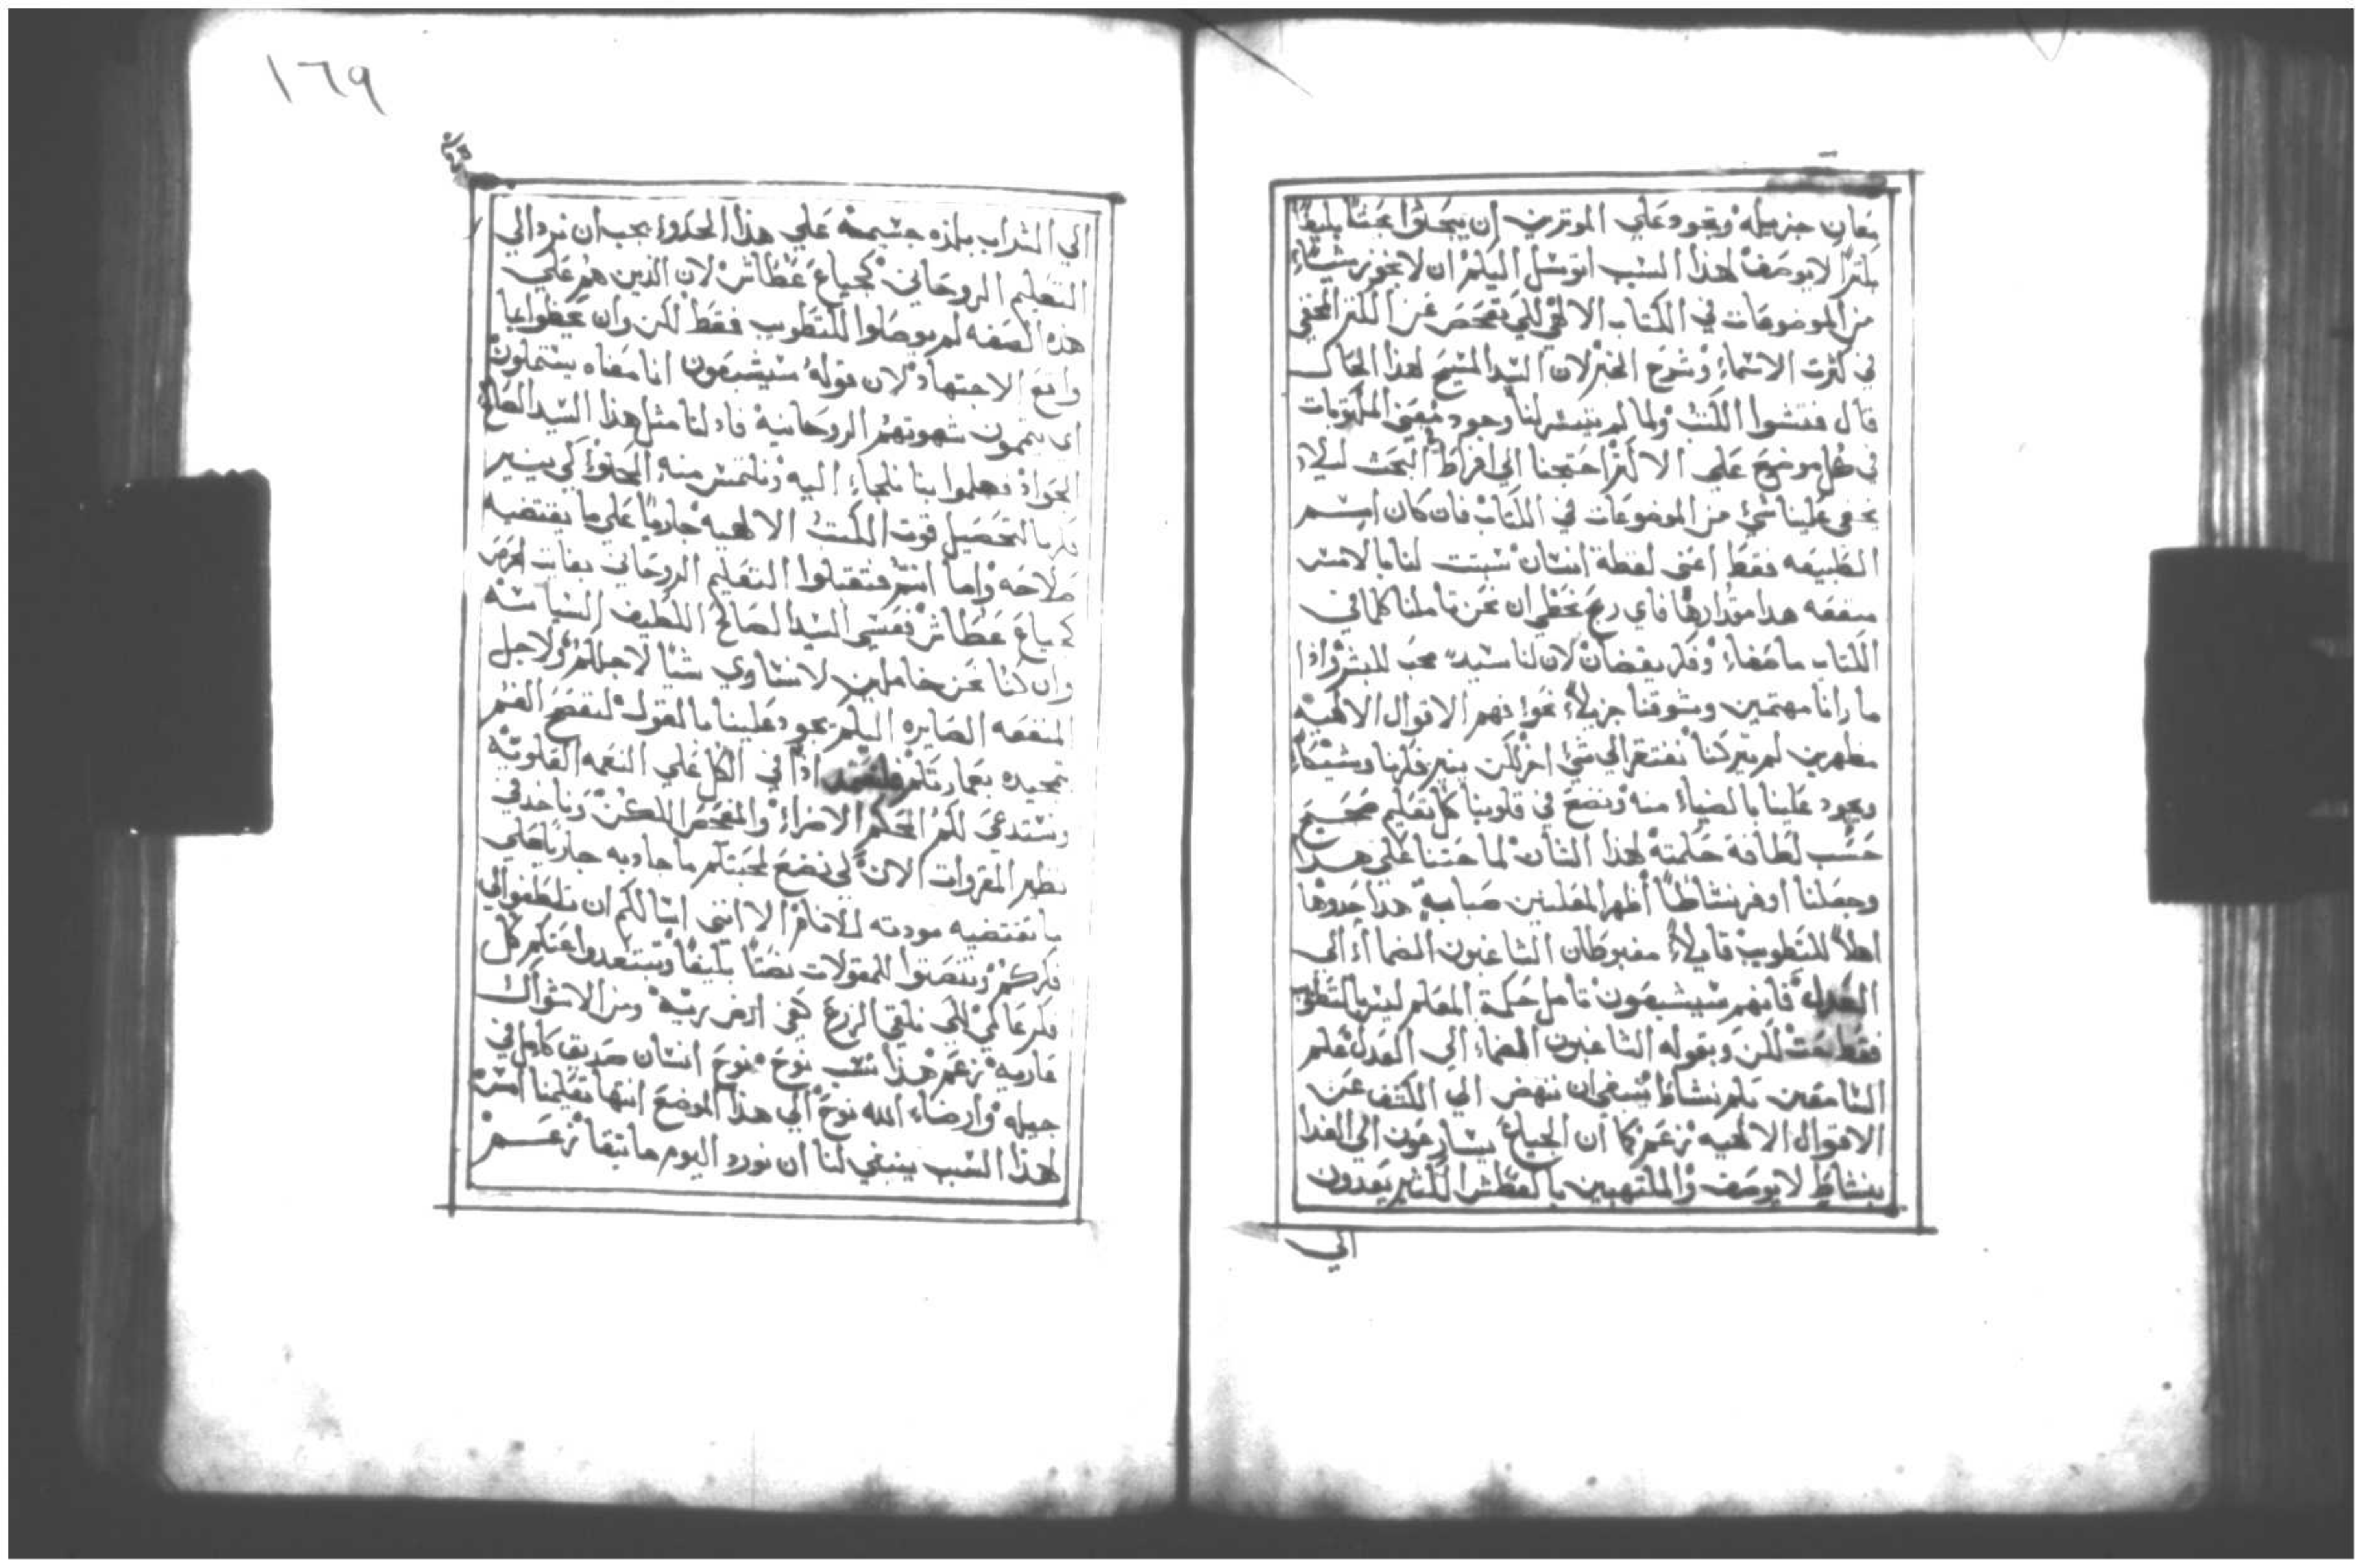 معان جزيله وتجود علي الموترين ان يبحثوا بحثا بليغا
بكترا لا يوصف لهذا السبب اتوسل اليكم ان لا نجوز شياء
من الموضوعات في الكتاب الالهي لكي نفحص عن الكنز المخفي
في كثرت الاسماء وشرح الخبر لان السيد المسيح لهذا الحال
قال فتشوا الكتب ولما لم يتيسر لنا وجود معني المكتوبات
في كل موضع علي الاكثر احتجنا الي افراط البحث ليلا
يخفي علينا شي من الموضوعات في الكتاب فان كان اسم
الطبيعه فقط اعني لفظة انسان سببت لنا بالامس
منفعه هذا مقدارها فاي ربح نحظي ان نحن تاملنا كلما في
الكتاب ما صفاء وفكر يقضان لان لنا سيد محب للبشر واذا
ما رانا مهتمين ومشوقنا جزيلاء نحوا فهم الاقوال الالهيه
مظهرين لم يتركنا نفتقر الي شي اخر لكن ينير فكرنا وشيكاء
ويجود علينا بالضياء منه ونضع في قلوبنا كل تعليم صحيح
حسب لطافة حكمته لهذا الشان لما حثنا علي هذا
وجعلنا اوفر نشاطا اظهر المعلنين صبابة هذا حدوها
اهلا للتطويب قايلاء مغبوطان الشاغبون الضماء الي
العدل فانهم سيشبعون تامل حكمة المعلم ليس بالتطويب
فقط بعث لكن وبقوله الشاغبون الضماء الي العدل علم
السامعين بكم نشاط ينبغي ان ننهض الي الكشف عن
الاقوال الالهيه نزعم كما ان الجياع يسارعون الي الغدا
بنشاط لا يوصف والملتهبين بالعطش الكثير يعدون
الي
١٦٩
الي الشراب بلذه جسيمه علي هذا الحذو يجب ان نرد الي
التعليم الروحاني كجياع عطاش لان الذين هم علي
هذه الصفه لم يوصلوا للتطويب فقط لكن وان يحظوا بما
وافق الاجتهاد لان قوله سيشبعون انما معناه يستملون
اي يتمون شهوتهم الروحانيه فاذ لنا مثل هذا السيد الصالح
الجواد فهلموا بنا نلجاء اليه ونلتمس منه الجدوا كي ينير
فكرنا لتحصيل قوت الكتب الالهيه جاريا علي ما يقتضيه
صلاحه واما انتم فتقبلوا التعليم الروحاني بغايت الحرص
كجياع عطاش فعسي السيد الصالح اللطيف السياسه
وان كنا نحن خاملين لا نساوي شيا لاجلكم ولاجل
المنفعه الصايره اليكم يجود علينا بالقول لنفتح الفم
تمجيده بعمارتكم فلنعتمد اذا في الكل علي النعمه العلويه
ونستدعي لكم المحكم الاضراء والمفحص اللكن وناخذ في
نظير المقروات الان كي نضع لمحبتكم ما جاد به جاريا علي
ما تقتضيه مودته للانام الا انني اسالكم ان تلطفوا الي
فكركم وتنصتوا للمقولات نصتا بليغا وتبتعدوا عنكم كل
فكر عاكي لكي نلقي الزرع كفي ارض بريه ومن الاشواك
عاريه نزعم هذا نسب نوح نوح انسان صديق كامل في
جيله وارضاء الله نوح الي هذا الموضع انتها تعليمنا امس
لهذا السبب ينبغي لنا ان نورد اليوم ما تبقا نزعم